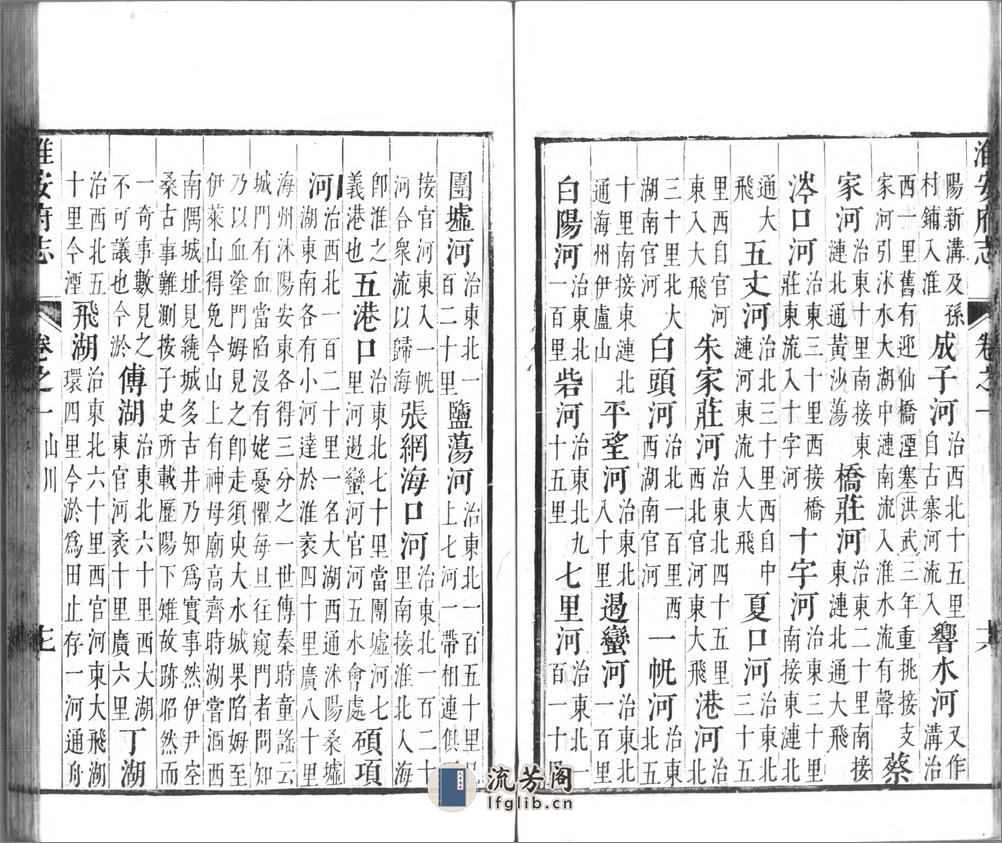 淮安府志 卷之一 十六
陽新溝及孫村鋪入淮 成子河 治西北十五里自古寨河流入 響水河 又作溝治
西一里舊有迎仙橋湮塞洪武三年重挑接支家河引沭水大湖中漣南流入淮水流有聲 蔡
家河 治東十里南接東漣北通黃沙蕩 橋莊河 治東二十里南接東漣北通大飛
涔口河 治東三十里西接橋莊東流入十字河 十字河 治東三十里南接東漣北
通大飛 五丈河 治東北十里西自中漣河東入大飛 夏口河 治東北三十五
里自官河東入大飛 朱家莊河 治東北四十里東大飛河 港河 治東北五
三十里北大湖南官河 白頭河 治北一百里西西湖南官河 一㡆河 治東北五
十里南接東漣北通海州伊盧山 平望河 治東北八十里 遏蠻河 治東北一百里
白陽河 治東北一百里 砦河 治東北九十五里 七里河 治東北一百一十
團墟河 治東北一百二十里 鹽蕩河 治東北一百五十里已上七河一帶相連俱
接官河東入一㡆河合眾流以歸海 張網海口河 治東北一百二十里南接淮北入海
即淮之義港也 五港口 治東北七十里當團墟河七里河遏蠻河官河五水會處 碩項
河 治西北一百二十里一名大湖西通沭陽桑墟湖東南各有小河達於淮袤四十里廣八十里
海州沭陽安東各得三分之一世傳秦時童謠云城門有血當陷沒有姥憂懼每旦往窺門者問知
乃以血塗門姆見之即走須臾大水城果陷姆至伊萊山得免今山上有神母廟高齊時湖嘗涸西
南隅城址見繞城多古井乃知為實事然伊尹空桑古事難測按子史所載歷陽下雉故跡昭然而
一奇事數見之不可議也今於 傅湖 治東北六十里西大湖東官河袤十里廣六里 丁湖
治西北五十里今湮 飛湖 治東北六十里西官河東大飛湖環四里今淤為田止存一河通舟
淮安府志 卷之一 山川 十七
流芳阁
lfglib.cn